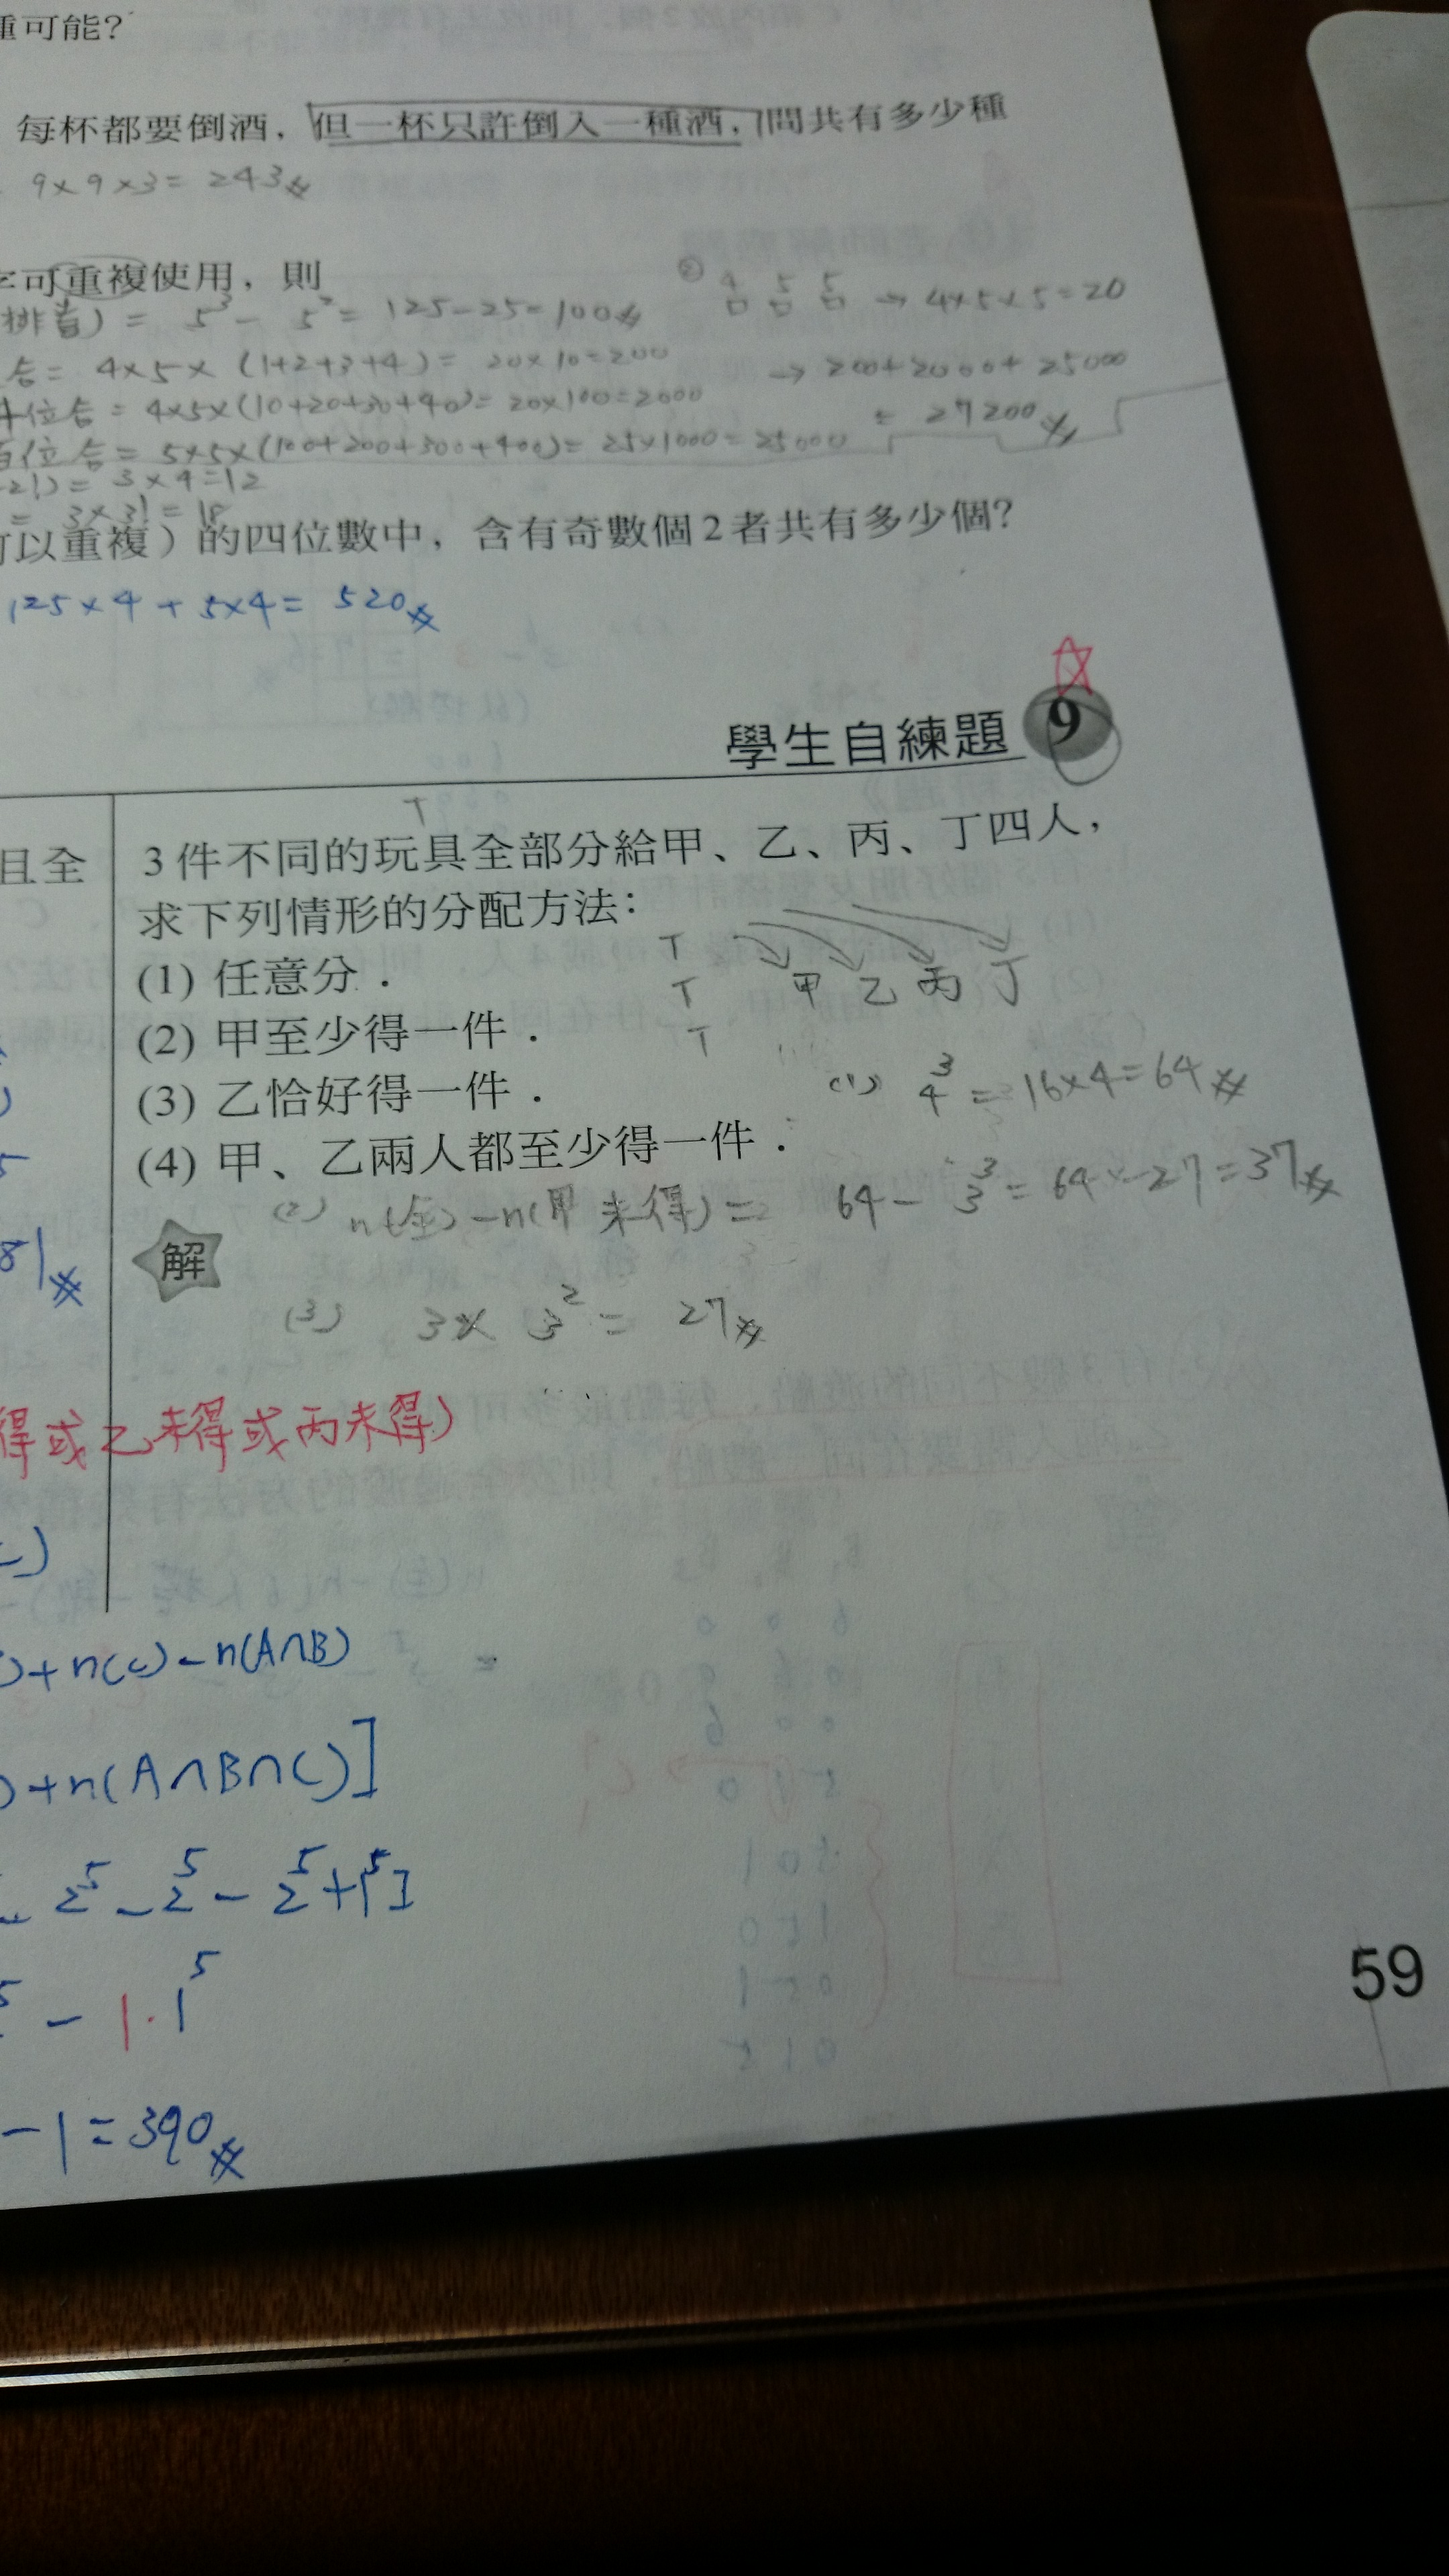 重可能?
每杯都要倒酒，但一杯只許倒入一種酒，問共有多少種
9×9×3=243
可重複使用，則
排首) = 5³ - 5² = 125-25=100
② 4 5 5 → 4×5×5=20
合= 4×5×(1+2+3+4)= 20×10=200
→ 200+2000+25000
位合 = 4×5×(10+20+30+40)= 20×100=2000
= 27200
百位合 = 5×5×(100+200+300+400)= 25×1000=25000
= 3×4=12
= 3×3! = 18
可以重複）的四位數中，含有奇數個2者共有多少個?
125×4 + 5×4= 520
學生自練題 9
且全
3件不同的玩具全部分給甲、乙、丙、丁四人，
求下列情形的分配方法：
(1) 任意分．
T T T 甲 乙 丙 丁
(2) 甲至少得一件．
(3) 乙恰好得一件．
(1) 4³ = 16×4=64
(4) 甲、乙兩人都至少得一件．
(2) n(全)-n(甲未得)= 64- 3³ = 64-27=37
解
81
(3) 3× 3² = 27
得或乙未得或丙未得)
)+n(C)-n(A∩B)
)+n(A∩B∩C)]
2⁵-2⁵-2⁵+1⁵]
- 1·1⁵
-1=390
59